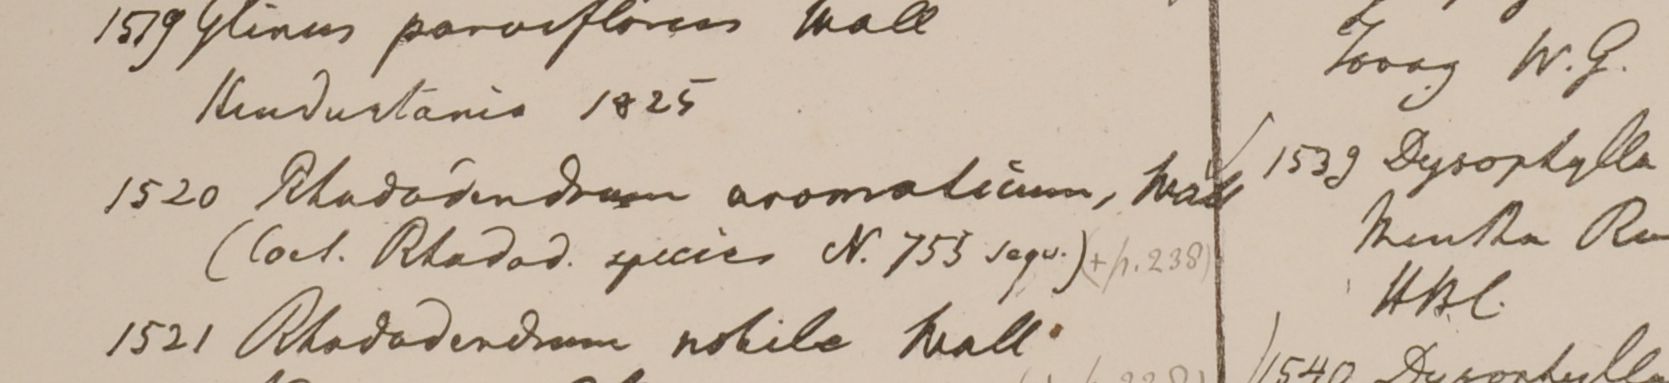 1519 Glinus parviflorus Wall
Hindustania 1825
1520 Rhododendrum aromaticum, Wall
(Coet. Rhodod. species N. 753 sequ.) (+ p. 238)
1521 Rhododendrum nobile Wall
Tovag W. G.
1539 Dysophylla
Mentha
HBC.
1540 Dysophylla